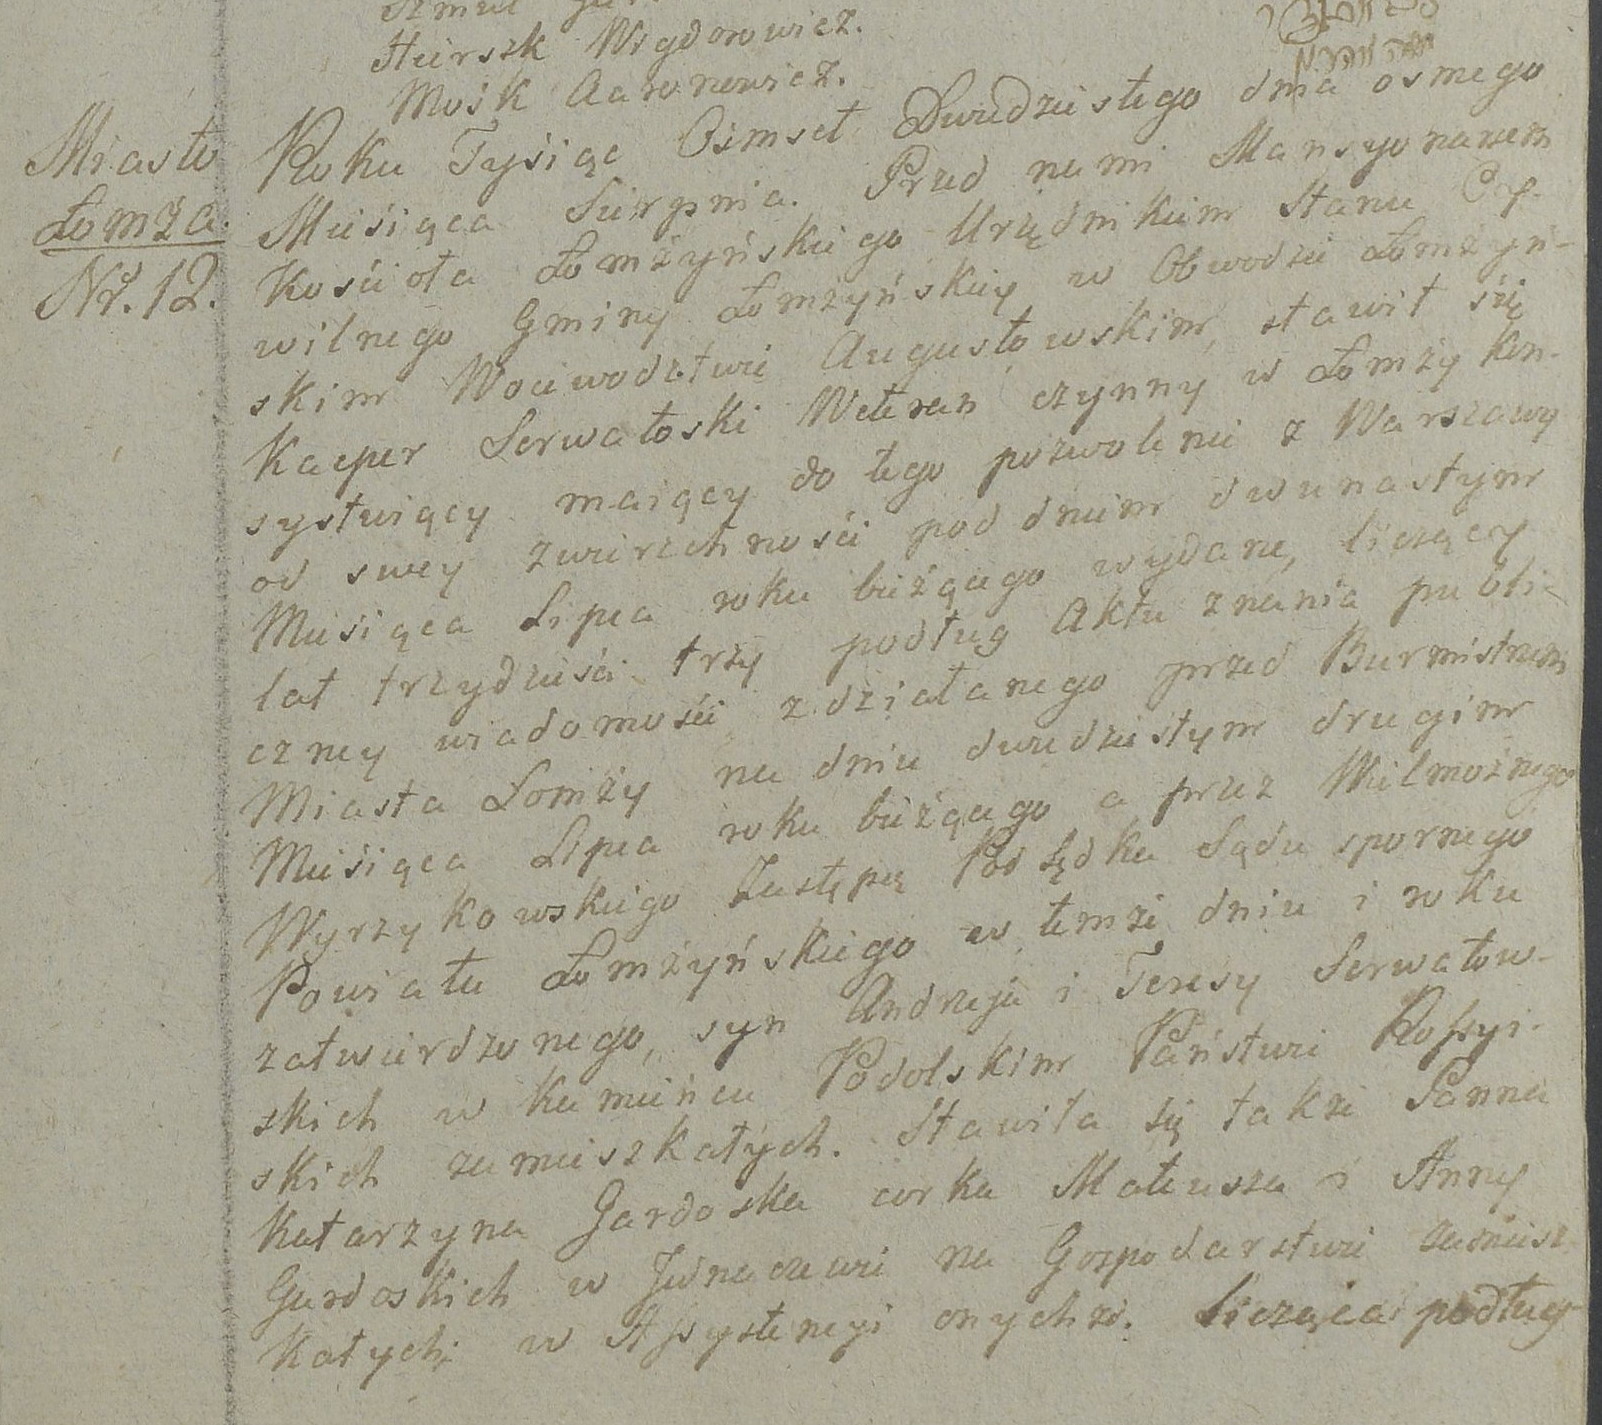 Herszk Wigdorowicz.
Mośk Aaronowicz.
Miasto
Łomża.
Nr. 12.
Roku Tysiąc Ośmset Dwudziestego dnia osmego
Miesiąca Sierpnia. Przed nami Mansyonarzem
Kościoła Łomżyńskiego Urzędnikiem Stanu Cy-
wilnego Gminy Łomżyńskiey w Obwodzie Łomżyń-
skim Woiewodztwie Augustowskim, stawił się
Kacper Serwatoski Weteran czynny w Łomży kon-
systuiący maiący do tego pozwolenie z Warszawy
od swey zwierzchności pod dniem dwunastym
Miesiąca Lipca roku bieżącego wydane, liczący
lat trzydzieści trzy podług Aktu znania publi-
czney wiadomości zdziałanego przed Burmistrzem
Miasta Łomży na dniu dwudziestym drugim
Miesiąca Lipca roku bieżącego a przez Wielmożnego
Wyrzykowskiego Zastępcę Podsędka Sądu spornego
Powiatu Łomżyńskiego w temże dniu i roku
zatwierdzonego, syn Andrzeja i Teresy Serwatow-
skich w Kamieńcu Podolskim Państwie Rossyi-
skich zamieszkałych. Stawiła się także Panna
Katarzyna Gardoska corka Mateusza i Anny
Gardoskich w Jednaczewie na Gospodarstwie zamiesz-
kałych; w Assystencyi onychże. Licząca podług